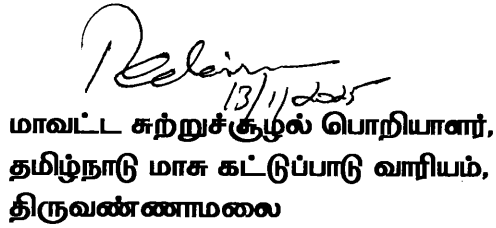 13/1/2025
மாவட்ட சுற்றுச்சூழல் பொறியாளர்,
தமிழ்நாடு மாசு கட்டுப்பாடு வாரியம்,
திருவண்ணாமலை